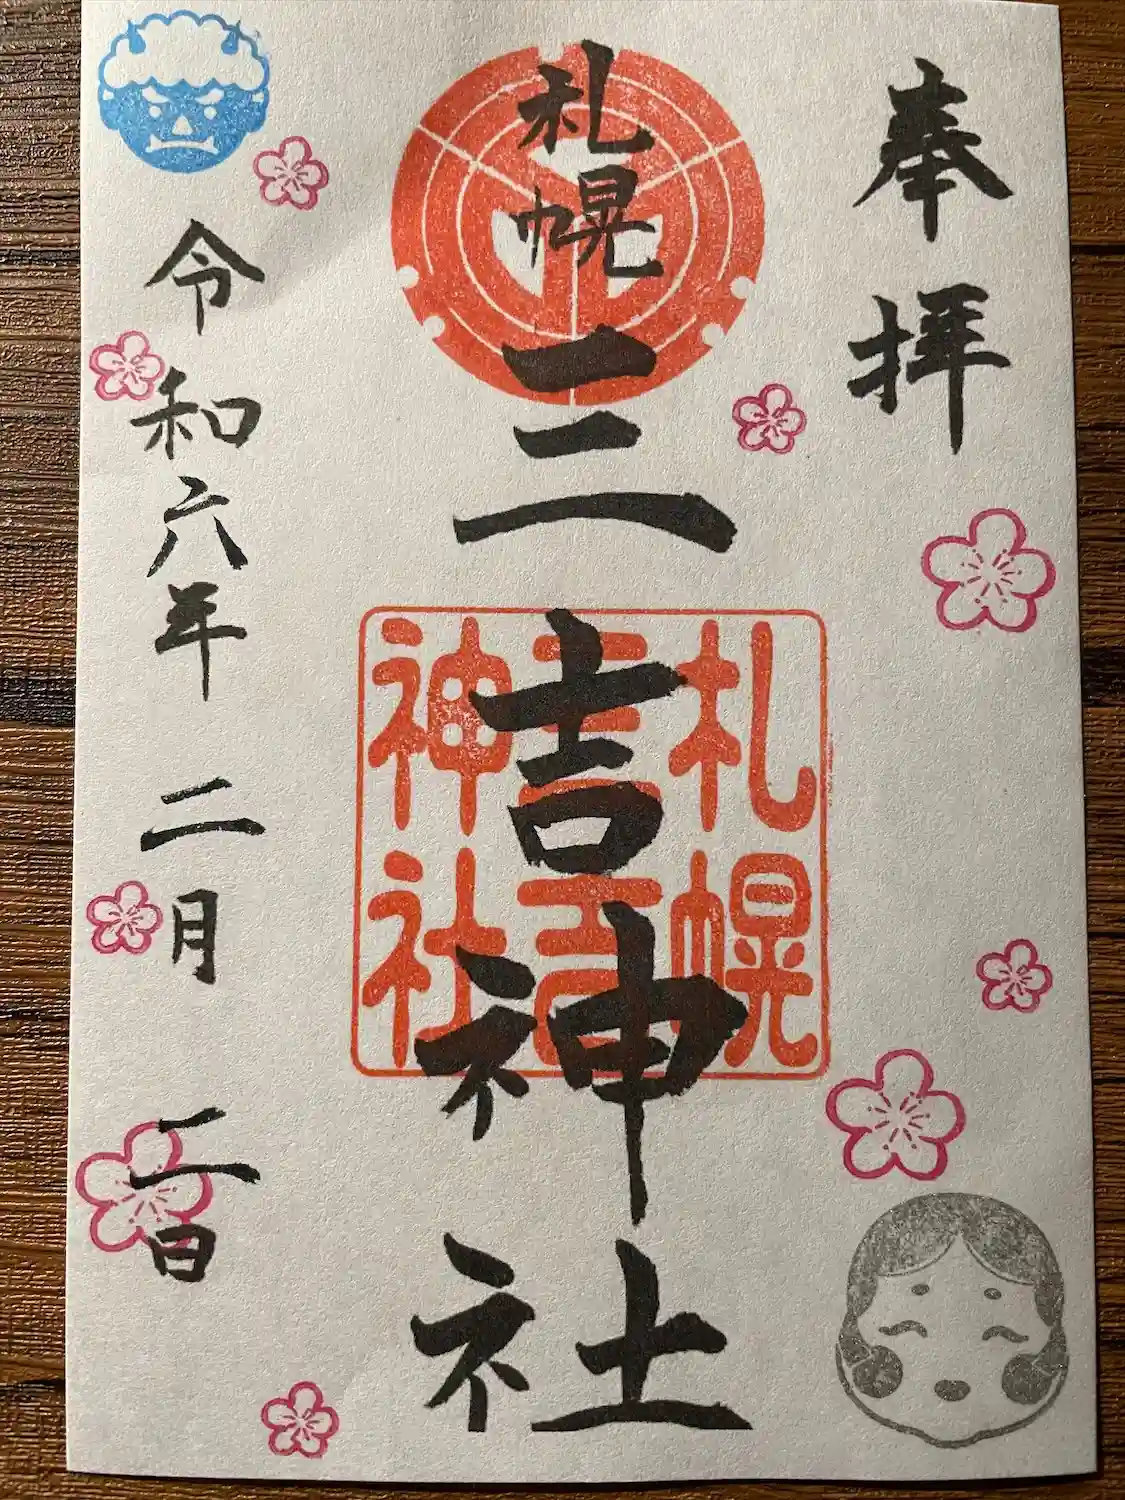 奉拝
札幌三吉神社
札幌
三吉
神社
令和六年二月二日